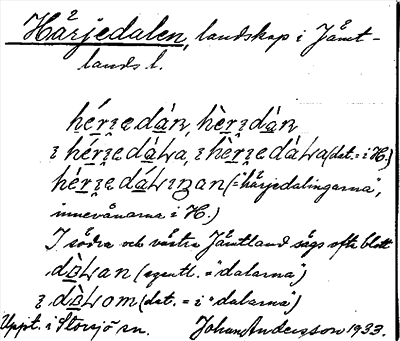 Härjedalen, landskap i Jämt-
lands l.
héri̯edàn, hèri̯dàn
i héri̯edàⱢa, i hèri̯edàⱢa (dat. = i H.)
héri̯edáⱢiŋan (="härjedalingarna",
innevånarna i H.)
I södra och västra Jämtland sägs ofta blott
dòⱢan (egentl. = "dalarna")
i dòⱢom (dat. = i "dalarna")
Uppt. i Storsjö sn. Johan Andersson 1933.